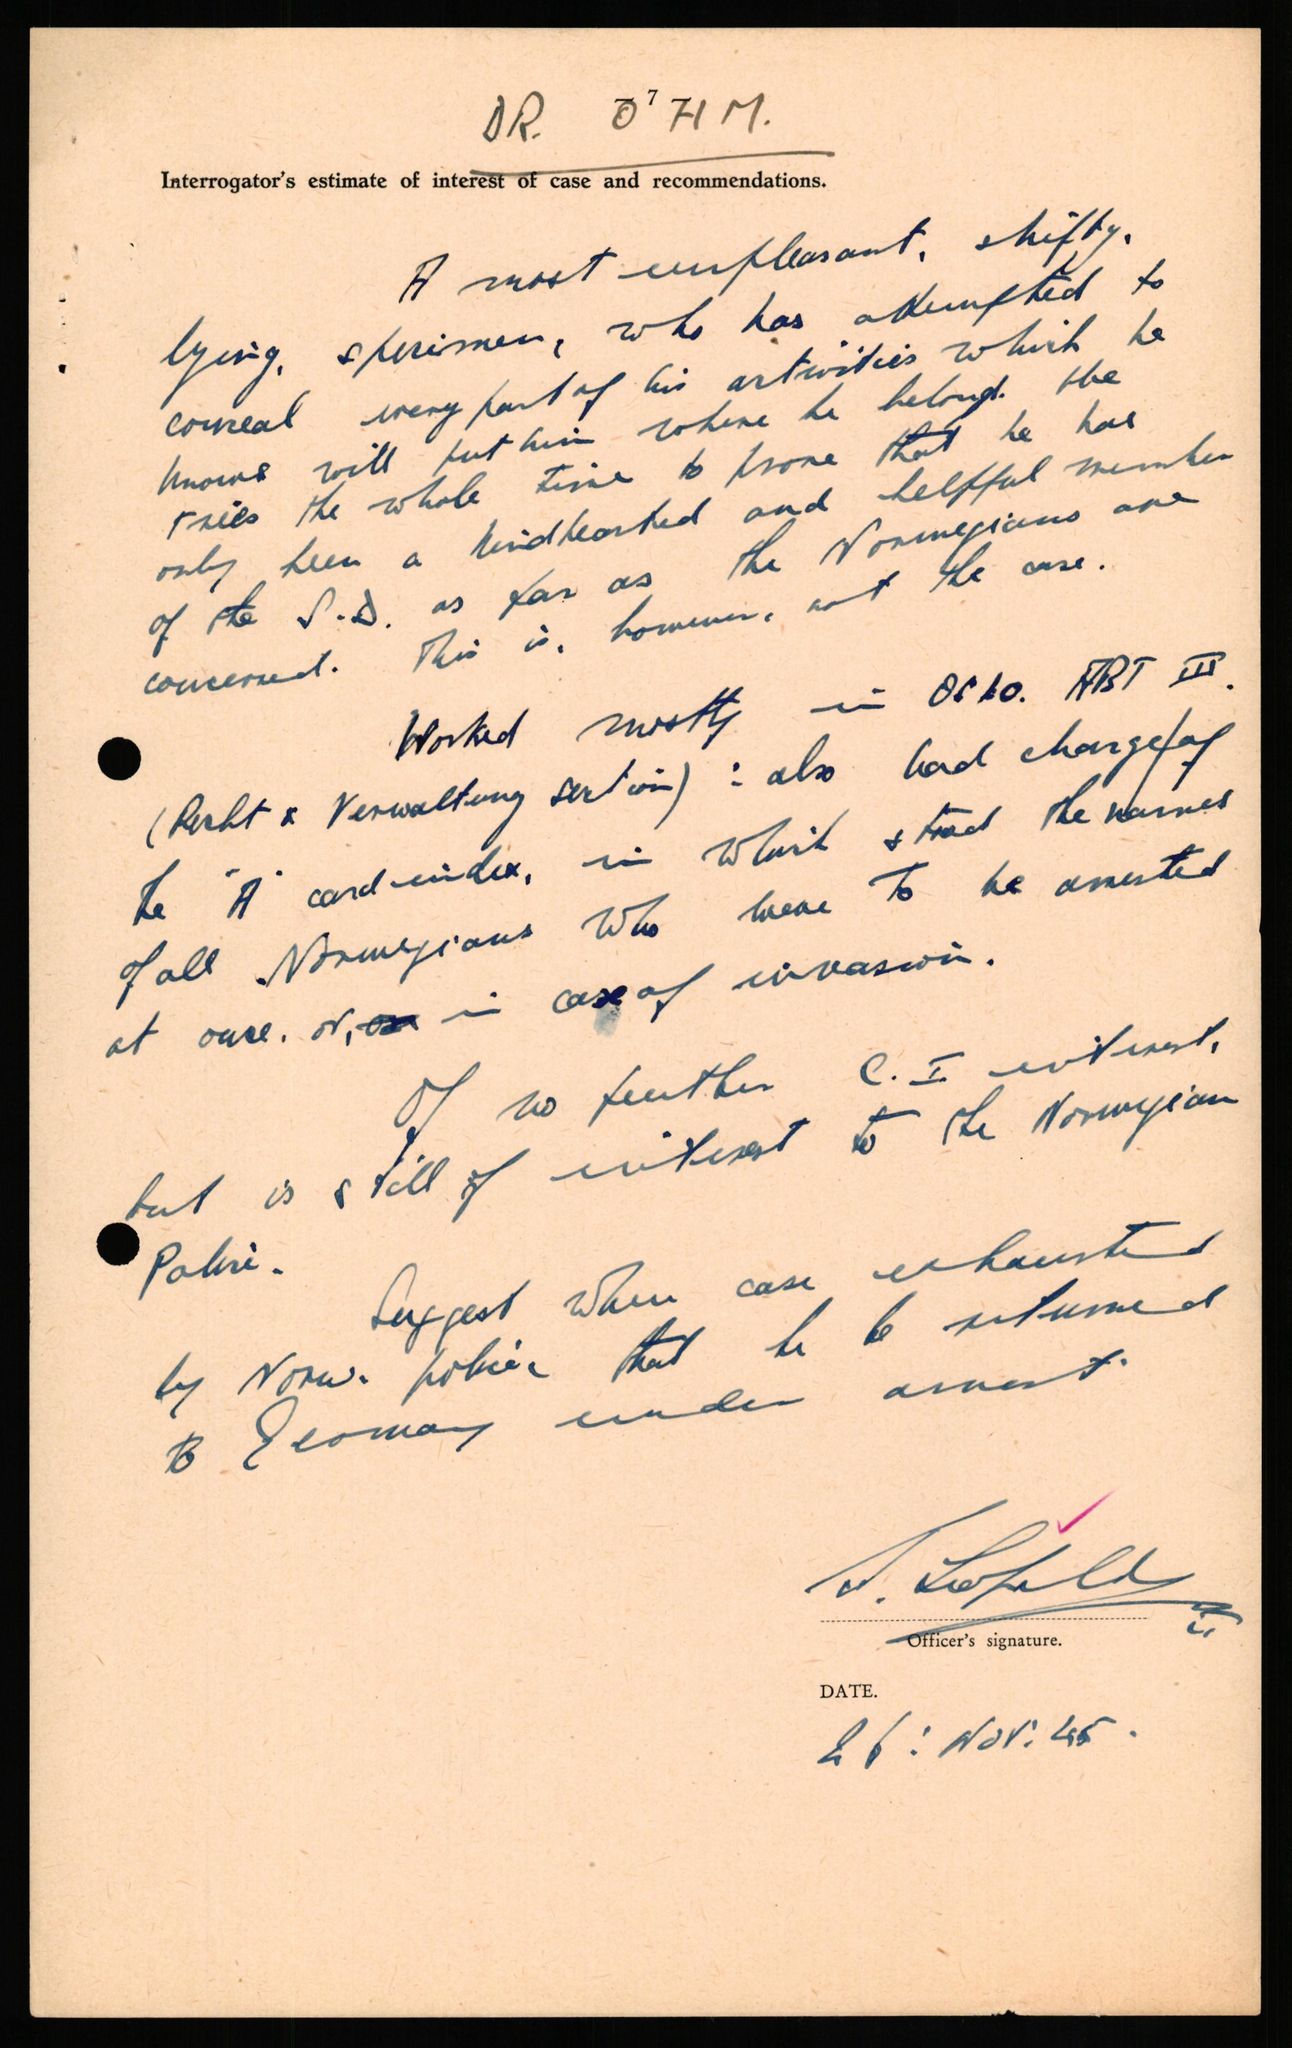 7
DR. OHM.
Interrogator's estimate of interest of case and recommendations.
A most unpleasant, shifty,
lying, specimen, who has attempted to
conceal every part of his activities which he
knows will put him where he belongs. He
tries the whole time to prove that he has
only been a kindhearted and helpful member
of the S.D. as far as the Norwegians are
concerned. This is, however, not the case.
Worked mostly in OSLO. ABT III.
(Recht & Verwaltung section): also had charge of
the "A" card-index, in which stood the names
of all Norwegians who were to be arrested
at once, or, in case of invasion.
Of no further C.I. interest,
but is still of interest to the Norwegian
Police.
Suggest when case exhausted
by Norw. police that he be returned
to Germany under arrest.
Officer's signature.
DATE.
26: Nov: 45.